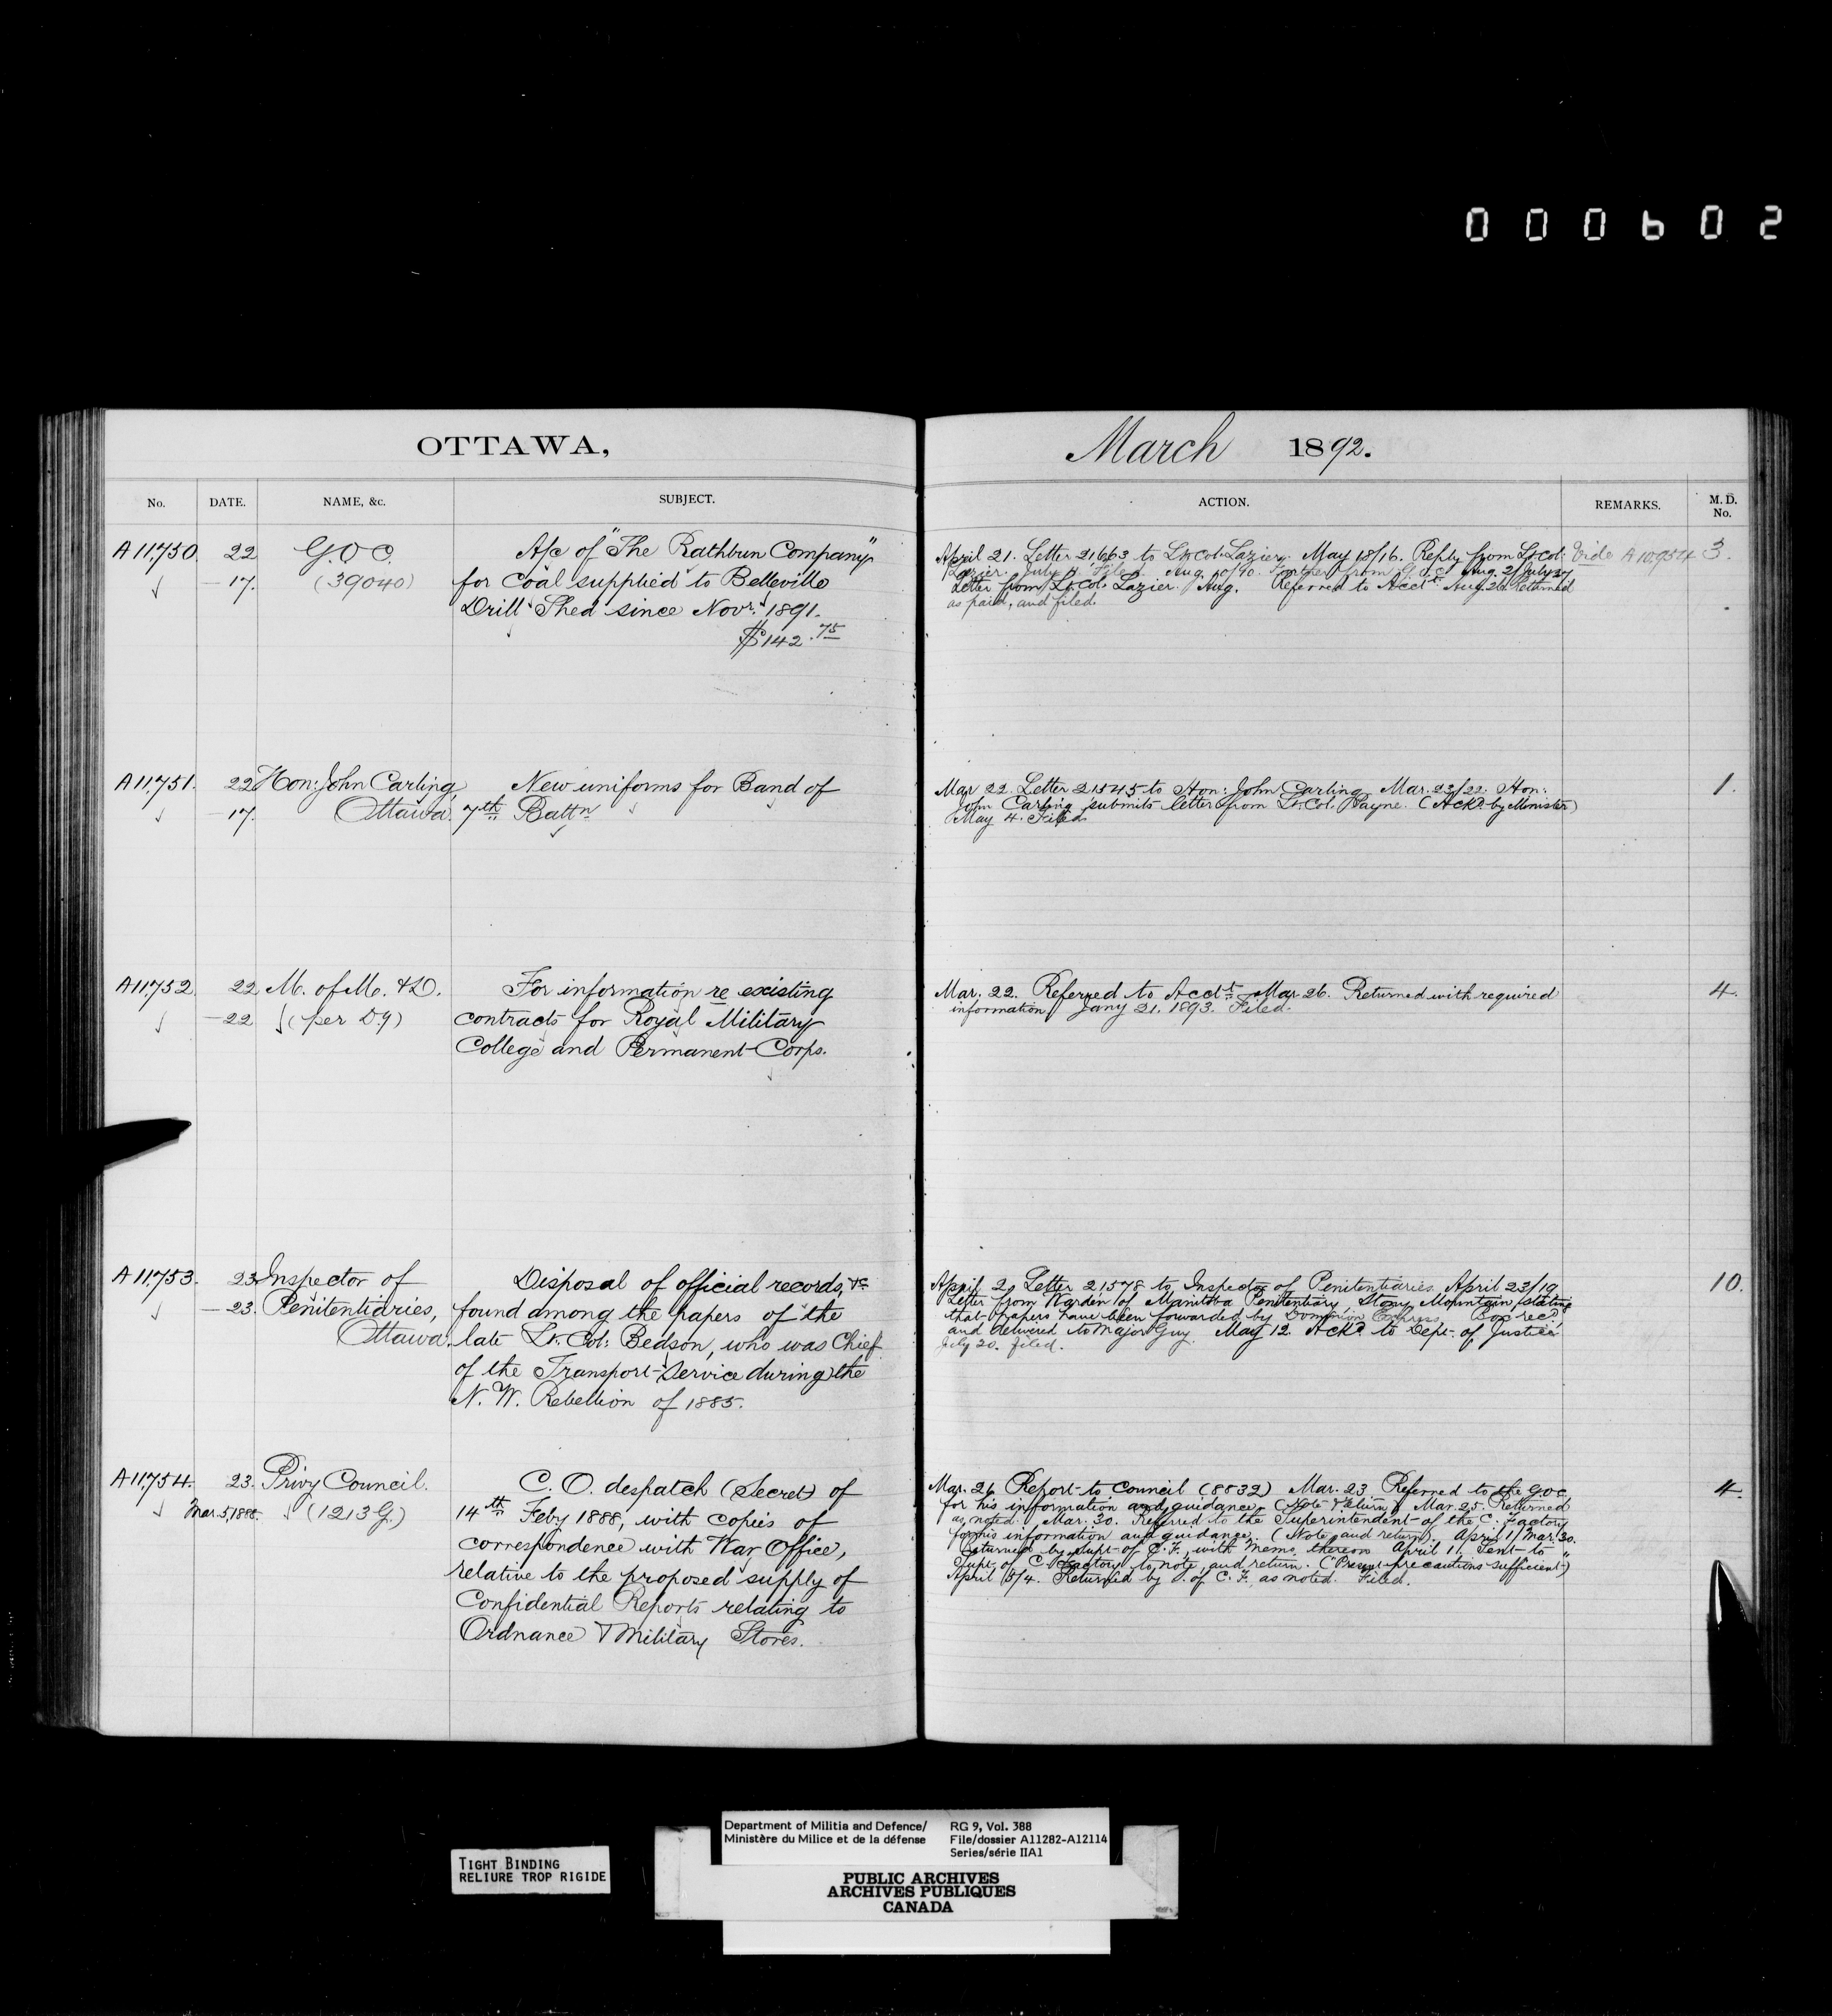 000602
OTTAWA,
March 1892.
No. DATE. NAME, &c. SUBJECT. ACTION. REMARKS. M.D. No.
A11,750. 22 G.O.C. A/c of "The Rathbun Company"
— 17. (39040) for Coal supplied to Belleville
Drill Shed since Novr. 1891.
$142.75
April 21. Letter 21663 to Lt. Col. Lazier. May 18/16. Reply from Lt. Col: Vide A10,954 3.
Lazier. July 4. Filed. Aug. 10/90. Further from G.O.C. Aug. 2/July 27
Letter from Lt. Col. Lazier. Aug. Referred to Acct. Aug. 26. Returned
as paid, and filed.
A11,751. 22 Hon: John Carling, New uniforms for Band of
— 17. Ottawa. 7th Battn
Mar 22. Letter 21545 to Hon: John Carling. Mar. 23/22. Hon: 1.
John Carling submits letter from Lt. Col. Payne. (Ackd. by Minister)
May 4. Filed.
A11,752 22 M. of M. & D. For information re existing
— 22 (per D.G) contracts for Royal Military
College and Permanent Corps.
Mar. 22. Referred to Acct. Mar 26. Returned with required 4.
information. Jany 21. 1893. Filed.
A11,753. 23. Inspector of Disposal of official records, &c
— 23. Penitentiaries, found among the papers of the
Ottawa. late Lt. Col: Bedson, who was Chief
of the Transport Service during the
N. W. Rebellion of 1885.
April 2. Letter 21578 to Inspector of Penitentiaries. April 23/19 10.
Letter from Warden of Manitoba Penitentiary, Stony Mountain, stating
that papers have been forwarded by Dominion Express. Box recd.
and delivered to Major Guy. May 12. Ackd. to Dept. of Justice.
July 20. filed.
A11,754. 23. Privy Council. C. O. despatch (Secret) of
Mar. 5, 1888. (1213 G.) 14th Feby 1888, with copies of
correspondence with War Office,
relative to the proposed supply of
Confidential Reports relating to
Ordnance & Military Stores.
Mar. 26 Report to Council (8832) Mar. 23 Referred to the G.O.C. 4.
for his information and guidance. (Note & return) Mar. 25. Returned
as noted. Mar. 30. Referred to the Superintendent of the C. Factory
for his information and guidance. (Note and return). April 1/Mar. 30.
Returned by Supt. of C. F., with memo. thereon April 11. Sent to
Supt. of C. Factory to note and return. ("Present precautions sufficient")
April 15/4. Returned by S. of C. F. as noted. Filed.
Department of Militia and Defence/
Ministère du Milice et de la défense
RG 9, Vol. 388
File/dossier A11282-A12114
Series/série IIA1
TIGHT BINDING
RELIURE TROP RIGIDE
PUBLIC ARCHIVES
ARCHIVES PUBLIQUES
CANADA